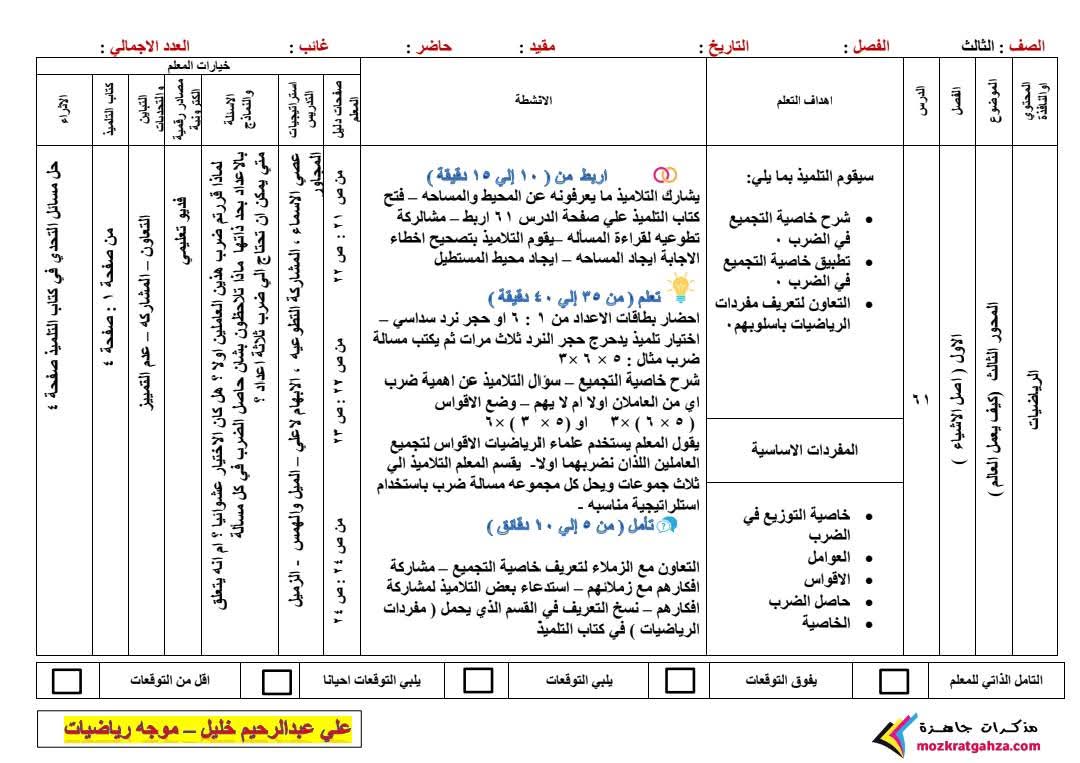 الصف : الثالث الفصل : التاريخ : مقيد : حاضر : غائب : العدد الاجمالي :
المحتوي او النافذة
الموضوع
الفصل
الدرس
اهداف التعلم
الانشطة
خيارات المعلم
صفحات دليل المعلم
استراتيجيات التدريس
الاسئلة والنماذج
مصادر رقمية الكترونية
التباين والتحديات
كتاب التلميذ
الاثراء
الرياضيات
المحور الثالث (كيف يعمل العالم )
الاول ( اصل الاشياء )
٦١
سيقوم التلميذ بما يلي:
شرح خاصية التجميع
في الضرب ٠
تطبيق خاصية التجميع
في الضرب ٠
التعاون لتعريف مفردات
الرياضيات باسلوبهم٠
المفردات الاساسية
خاصية التوزيع في
الضرب
العوامل
الاقواس
حاصل الضرب
الخاصية
اربط من ( ١٠ إلي ١٥ دقيقة )
يشارك التلاميذ ما يعرفونه عن المحيط والمساحه – فتح
كتاب التلميذ علي صفحة الدرس ٦١ اربط – مشالركة
تطوعيه لقراءة المسأله –يقوم التلاميذ بتصحيح اخطاء
الاجابة ايجاد المساحه – ايجاد محيط المستطيل
تعلم ( من ٣٥ إلي ٤٠ دقيقة )
احضار بطاقات الاعداد من ١ : ٦ او حجر نرد سداسي –
اختيار تلميذ يدحرج حجر النرد ثلاث مرات ثم يكتب مسالة
ضرب مثال : ٥ × ٦ ×٣
شرح خاصية التجميع – سؤال التلاميذ عن اهمية ضرب
اي من العاملان اولا ام لا يهم – وضع الاقواس
( ٥ × ٦ ) ×٣ او (٥ × ٣ ) ×٦
يقول المعلم يستخدم علماء الرياضيات الاقواس لتجميع
العاملين اللذان نضربهما اولا- يقسم المعلم التلاميذ الي
ثلاث جموعات ويحل كل مجموعه مسالة ضرب باستخدام
استلراتيجية مناسبه -
تأمل ( من ٥ إلي ١٠ دقائق )
التعاون مع الزملاء لتعريف خاصية التجميع – مشاركة
افكارهم مع زملائهم – استدعاء بعض التلاميذ لمشاركة
افكارهم – نسخ التعريف في القسم الذي يحمل ( مفردات
الرياضيات ) في كتاب التلميذ
من ص ٢١ : ص ٢٢
من ص ٢٧ : ص ٢٣
من ص ٢٤ : ص ٢٤
عصي الاسماء ، المشاركة التطوعيه ، الابهام لاعلي – الميل والهمس - الزميل
المجاور
متي يمكن ان تحتاج الي ضرب ثلاثة اعداد ؟
بالاعداد بحد ذاتها ماذا تلاحظون بشان حاصل الضرب في كل مسألة
لماذا قررتم ضرب هذين العاملين اولا ؟ هل كان الاختيار عشوائيا ؟ ام انه يتعلق
فديو تعليمي
التعاون – المشاركه – عدم التمييز
من صفحة ١ : صفحة ٤
حل مسائل التحدي في كتاب التلميذ صفحة ٤
التامل الذاتي للمعلم يفوق التوقعات يلبي التوقعات يلبي التوقعات احيانا اقل من التوقعات
علي عبدالرحيم خليل – موجه رياضيات
مذكرات جاهزة
mozkratgahza.com